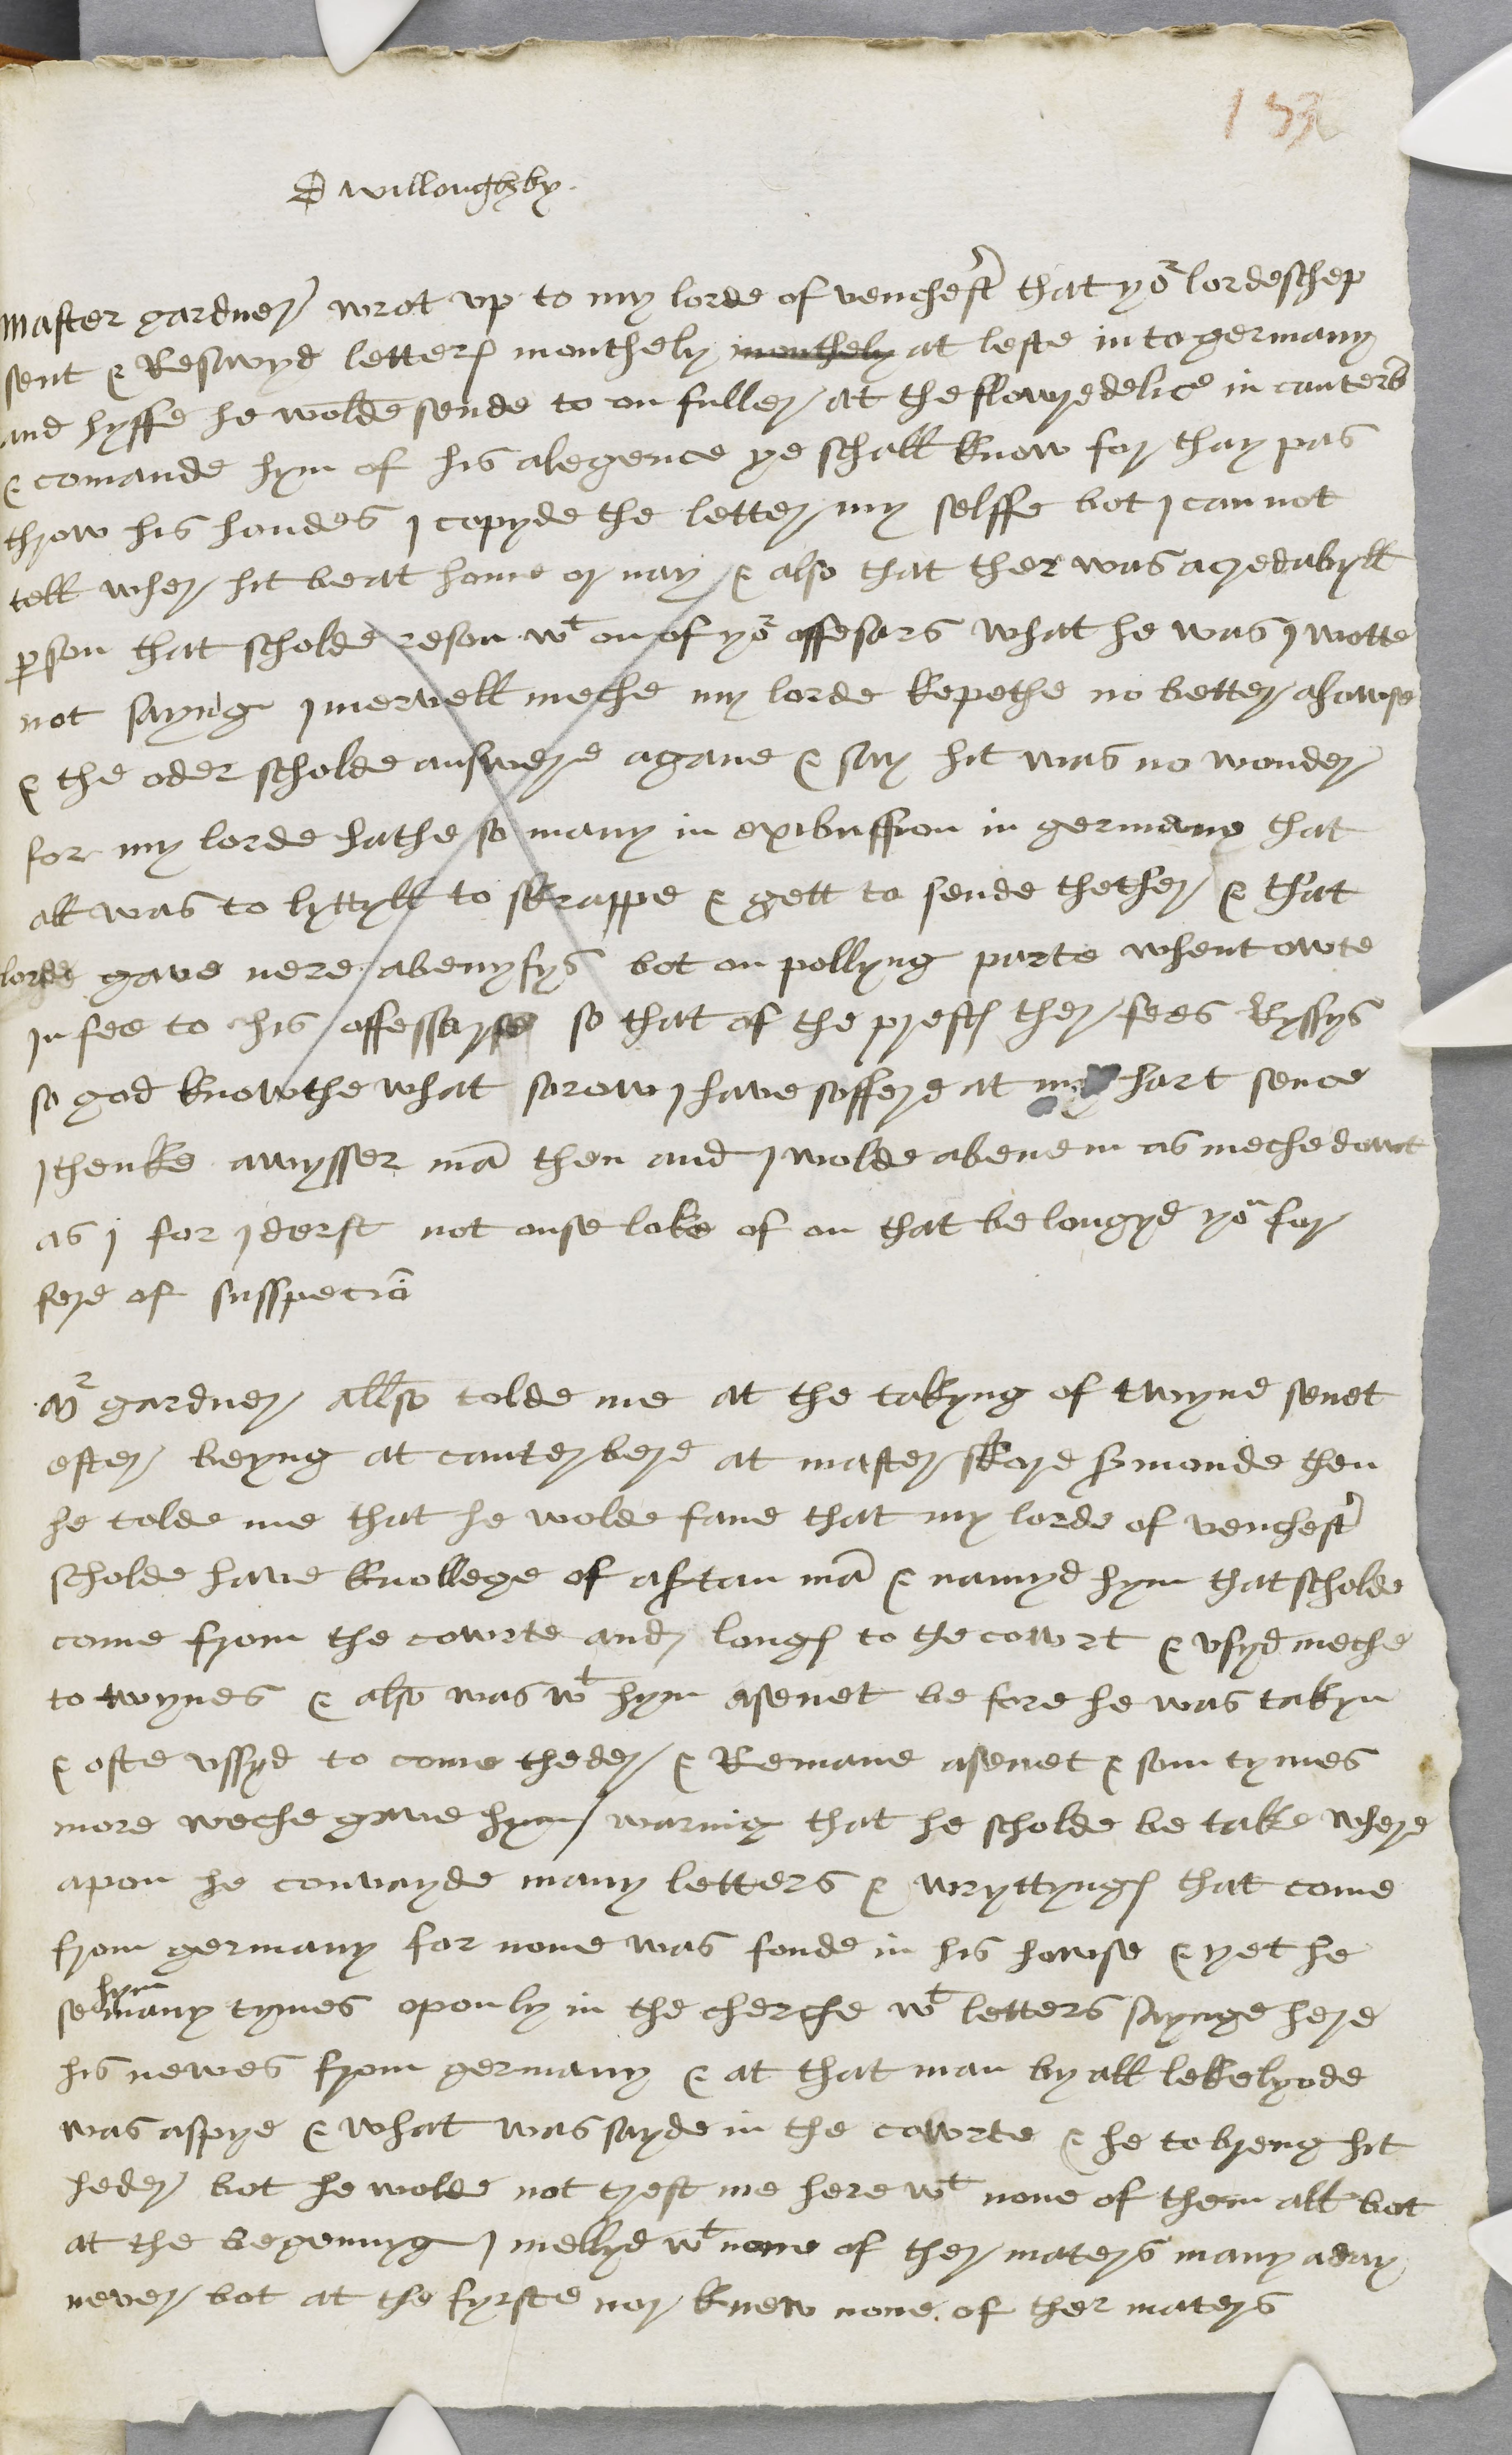 132
D willoughby.
Master gardner wrot vp to my lorde of venchestr that yor lordeschep
sent & Resavyd letters monthely monthely at leste in to germany
and hyffe he wolde sende to on fuller at the flowredelice in canterb
& comande hym of his alegence ye schall know for thay pas
throw his hondes I copyde the letter my selffe bot I can not
tell wher hit be at home or nay & also that ther was a credabyll
person that scholde reson wt on of yor offesars what he was I wotte
not sayng I mervell meche my lorde kepethe no better a howse
& the oder scholde answere agane & say hit was no wonder
for my lorde hathe so many in exibussion in germany that
all was to lyttyll to skrappe & gett to sende thether & that
lorde gave nere a benyfys bot on pollyng parte whent owte
In fee to his offessarse so that of the prests ther fees Ryssys
so god knowthe what sorow I have sofferd at my hart sence
I thenke a wysser man then and I wolde a bene in as meche dowt
as I for I derst not onse loke of on that be longyd yow for
fere of susspecion
Mr gardner allso tolde me at the takyng of twyne senet
efter beyng at canterbere at master skore sermonde then
he tolde me that he wolde fane that my lorde of venchestr
scholde have knollege of a sertan man & namyd hym that scholde
come from the cowrte and longs to the cowrt & vsyd meche
to twynes & also was wt hym a senet be fore he was takyn
& ofte vssyd to come theder & Remane a senet & som tymes
more weche gave hym warning that he scholde be take where
apon he convayde many letters & wryttyngs that come
from germany for none was fonde in his howse & yet he
se hym many tymes oponly in the cherche wt letters saynge here
his newes from germany & at that man by all lekelyode
was a spye & what was sayde in the cowrte & he to breng hit
heder bot he wolde not trest me here wt none of them all bot
at the begennyg I mellyd wt none of ther maters many a day
never bot at the fyrste nor knew none of ther maters